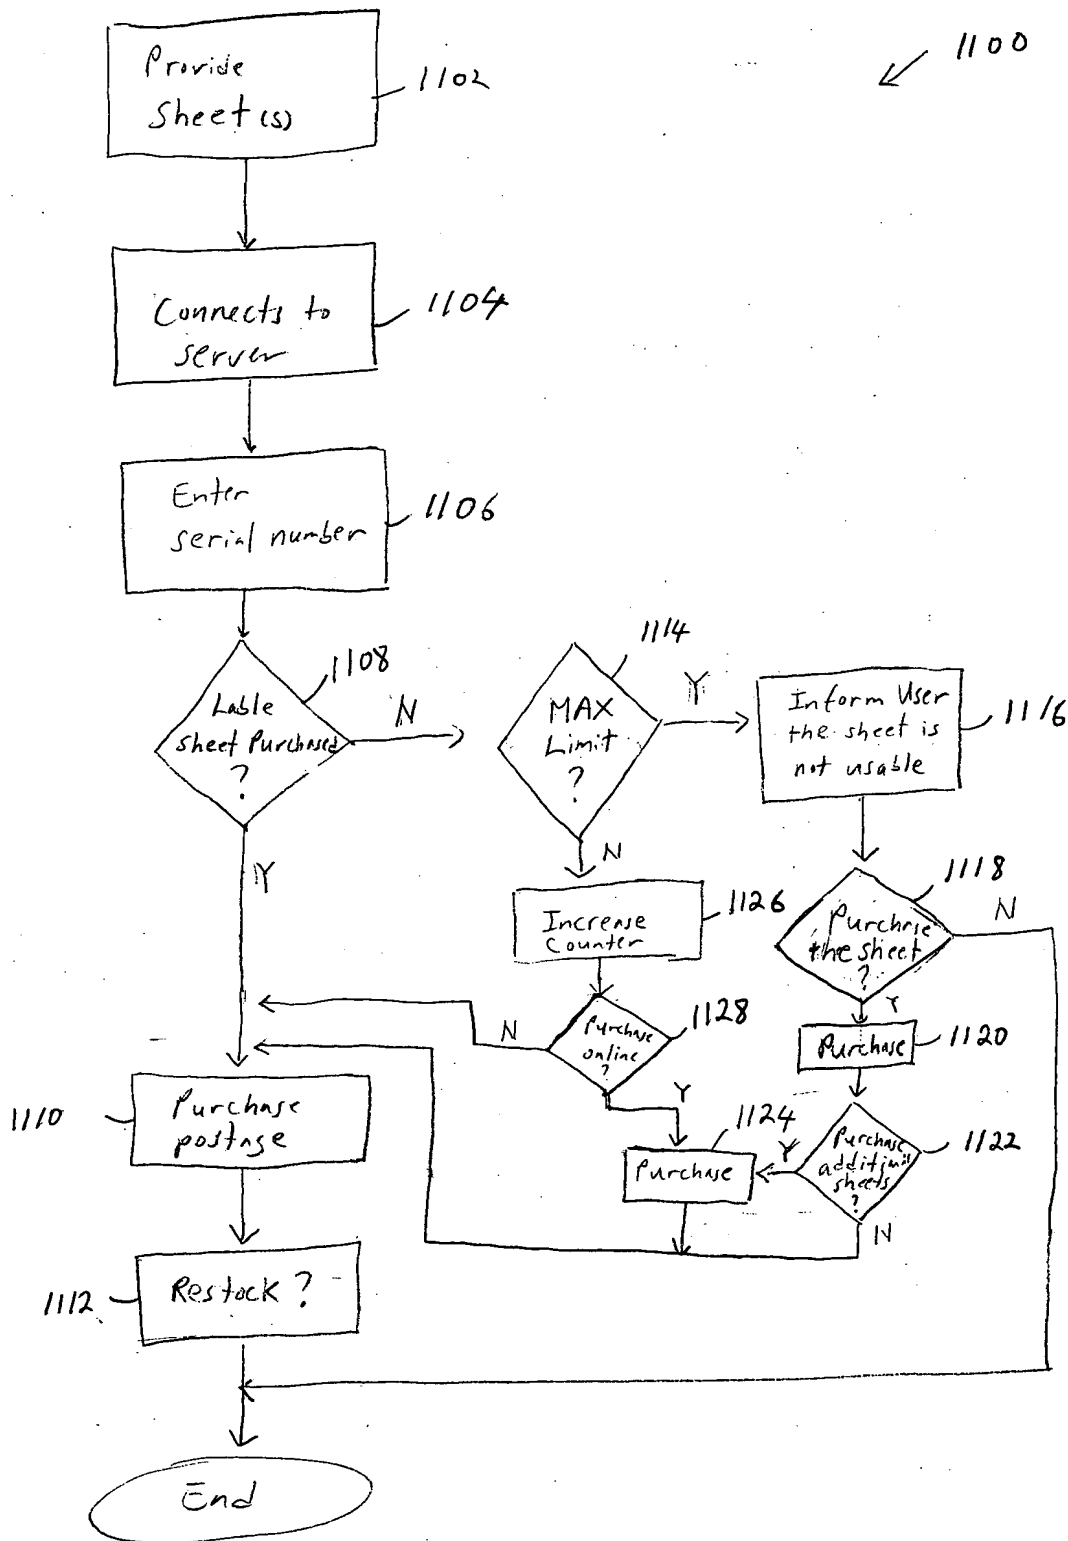 1100
Provide
Sheet(s)
1102
Connects to
server
1104
Enter
serial number
1106
Lable
sheet Purchased
?
1108
N
Y
MAX
Limit
?
1114
Y
N
Inform User
the sheet is
not usable
1116
Increase
Counter
1126
Purchase
the sheet
?
1118
N
Y
Purchase
online
?
1128
N
Y
Purchase
1120
Purchase
postage
1110
Purchase
1124
Y
Purchase
additional
sheets
?
1122
N
Restock ?
1112
End